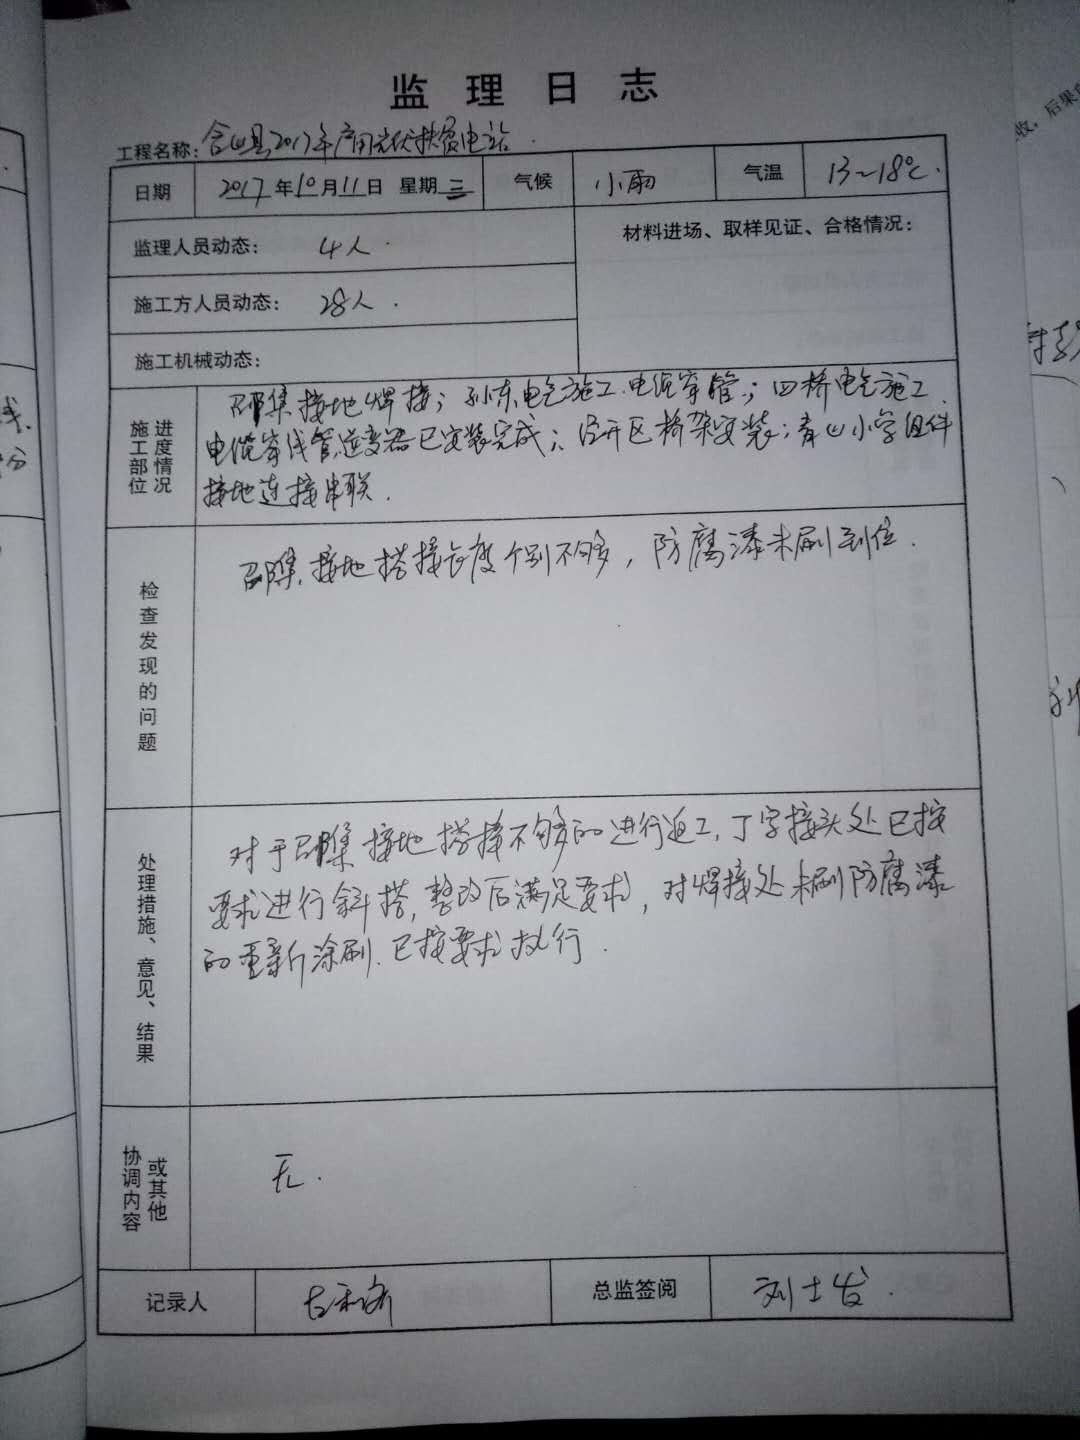 监理日志
工程名称：含山县2017年户用光伏扶贫电站.
日期 2017年10月11日 星期三 气候 小雨 气温 13~18℃.
监理人员动态： 4人. 材料进场、取样见证、合格情况：
施工方人员动态： 28人.
施工机械动态：
施工部位进度情况
邵集接地焊接；孙东电气施工.电缆穿管；四桥电气施工.
电缆穿线管,逆变器已安装完成；经开区桥架安装；青山小学组件
接地连接串联.
检查发现的问题
邵集.接地搭接长度个别不够，防腐漆未刷到位.
处理措施、意见、结果
对于邵集接地搭接不够的进行返工，丁字接头处已按
要求进行斜搭，整改后满足要求，对焊接处未刷防腐漆
的重新涂刷.已按要求执行.
协调内容或其他
无.
记录人 总监签阅 刘士发.